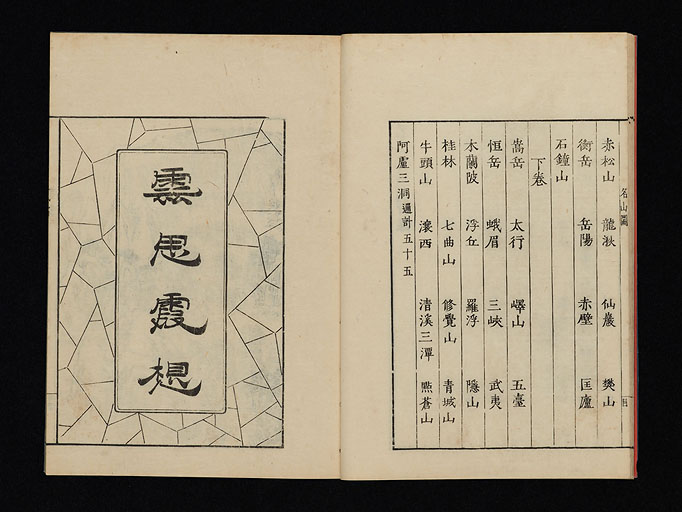 名山圖
赤松山 龍湫 仙巖 樊山
衡岳 岳陽 赤壁 匡廬
石鐘山
下卷
嵩岳 太行 嶧山 五臺
恒岳 峨眉 三峽 武夷
木蘭陂 浮丘 羅浮 隱山
桂林 七曲山 修覺山 青城山
牛頭山 瀼西 清溪三潭 㸃蒼山
阿廬三洞通計五十五
雲思霞想